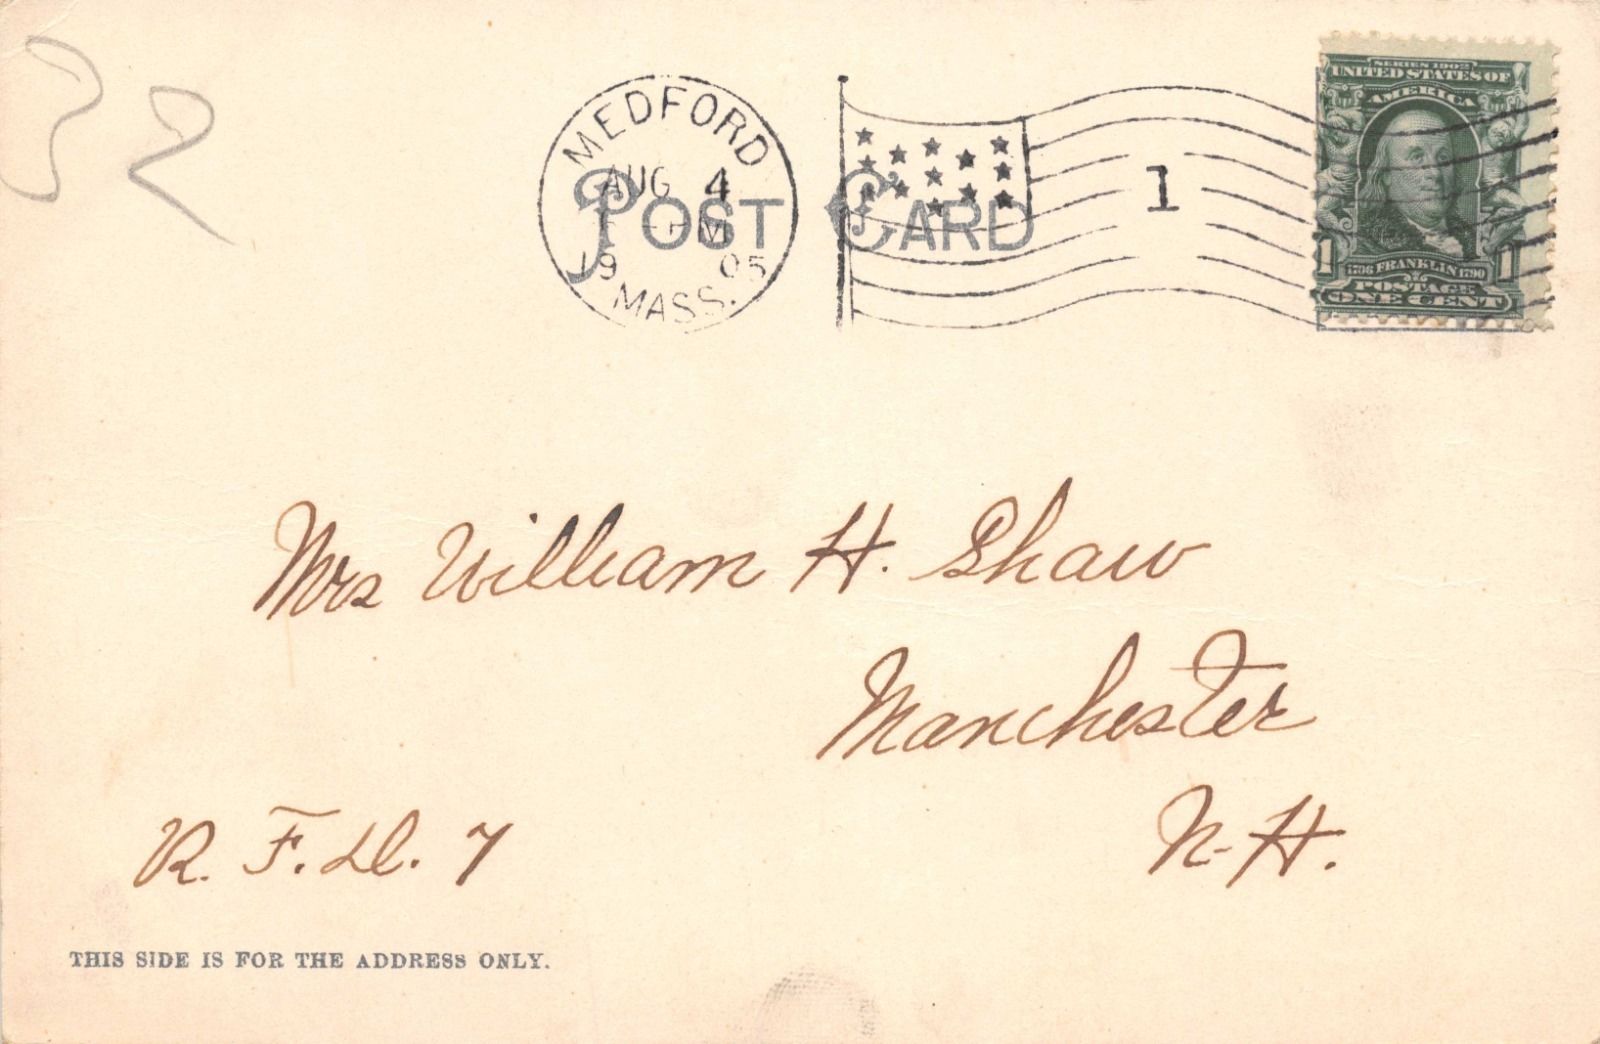 32
MEDFORD
AUG 4
M
1905
MASS.
POST CARD
1
SERIES 1902
UNITED STATES OF
AMERICA
1 1
1706 FRANKLIN 1790
POSTAGE
ONE CENT
Mrs William H. Shaw
Manchester
N-H.
R. F. D. 7
THIS SIDE IS FOR THE ADDRESS ONLY.